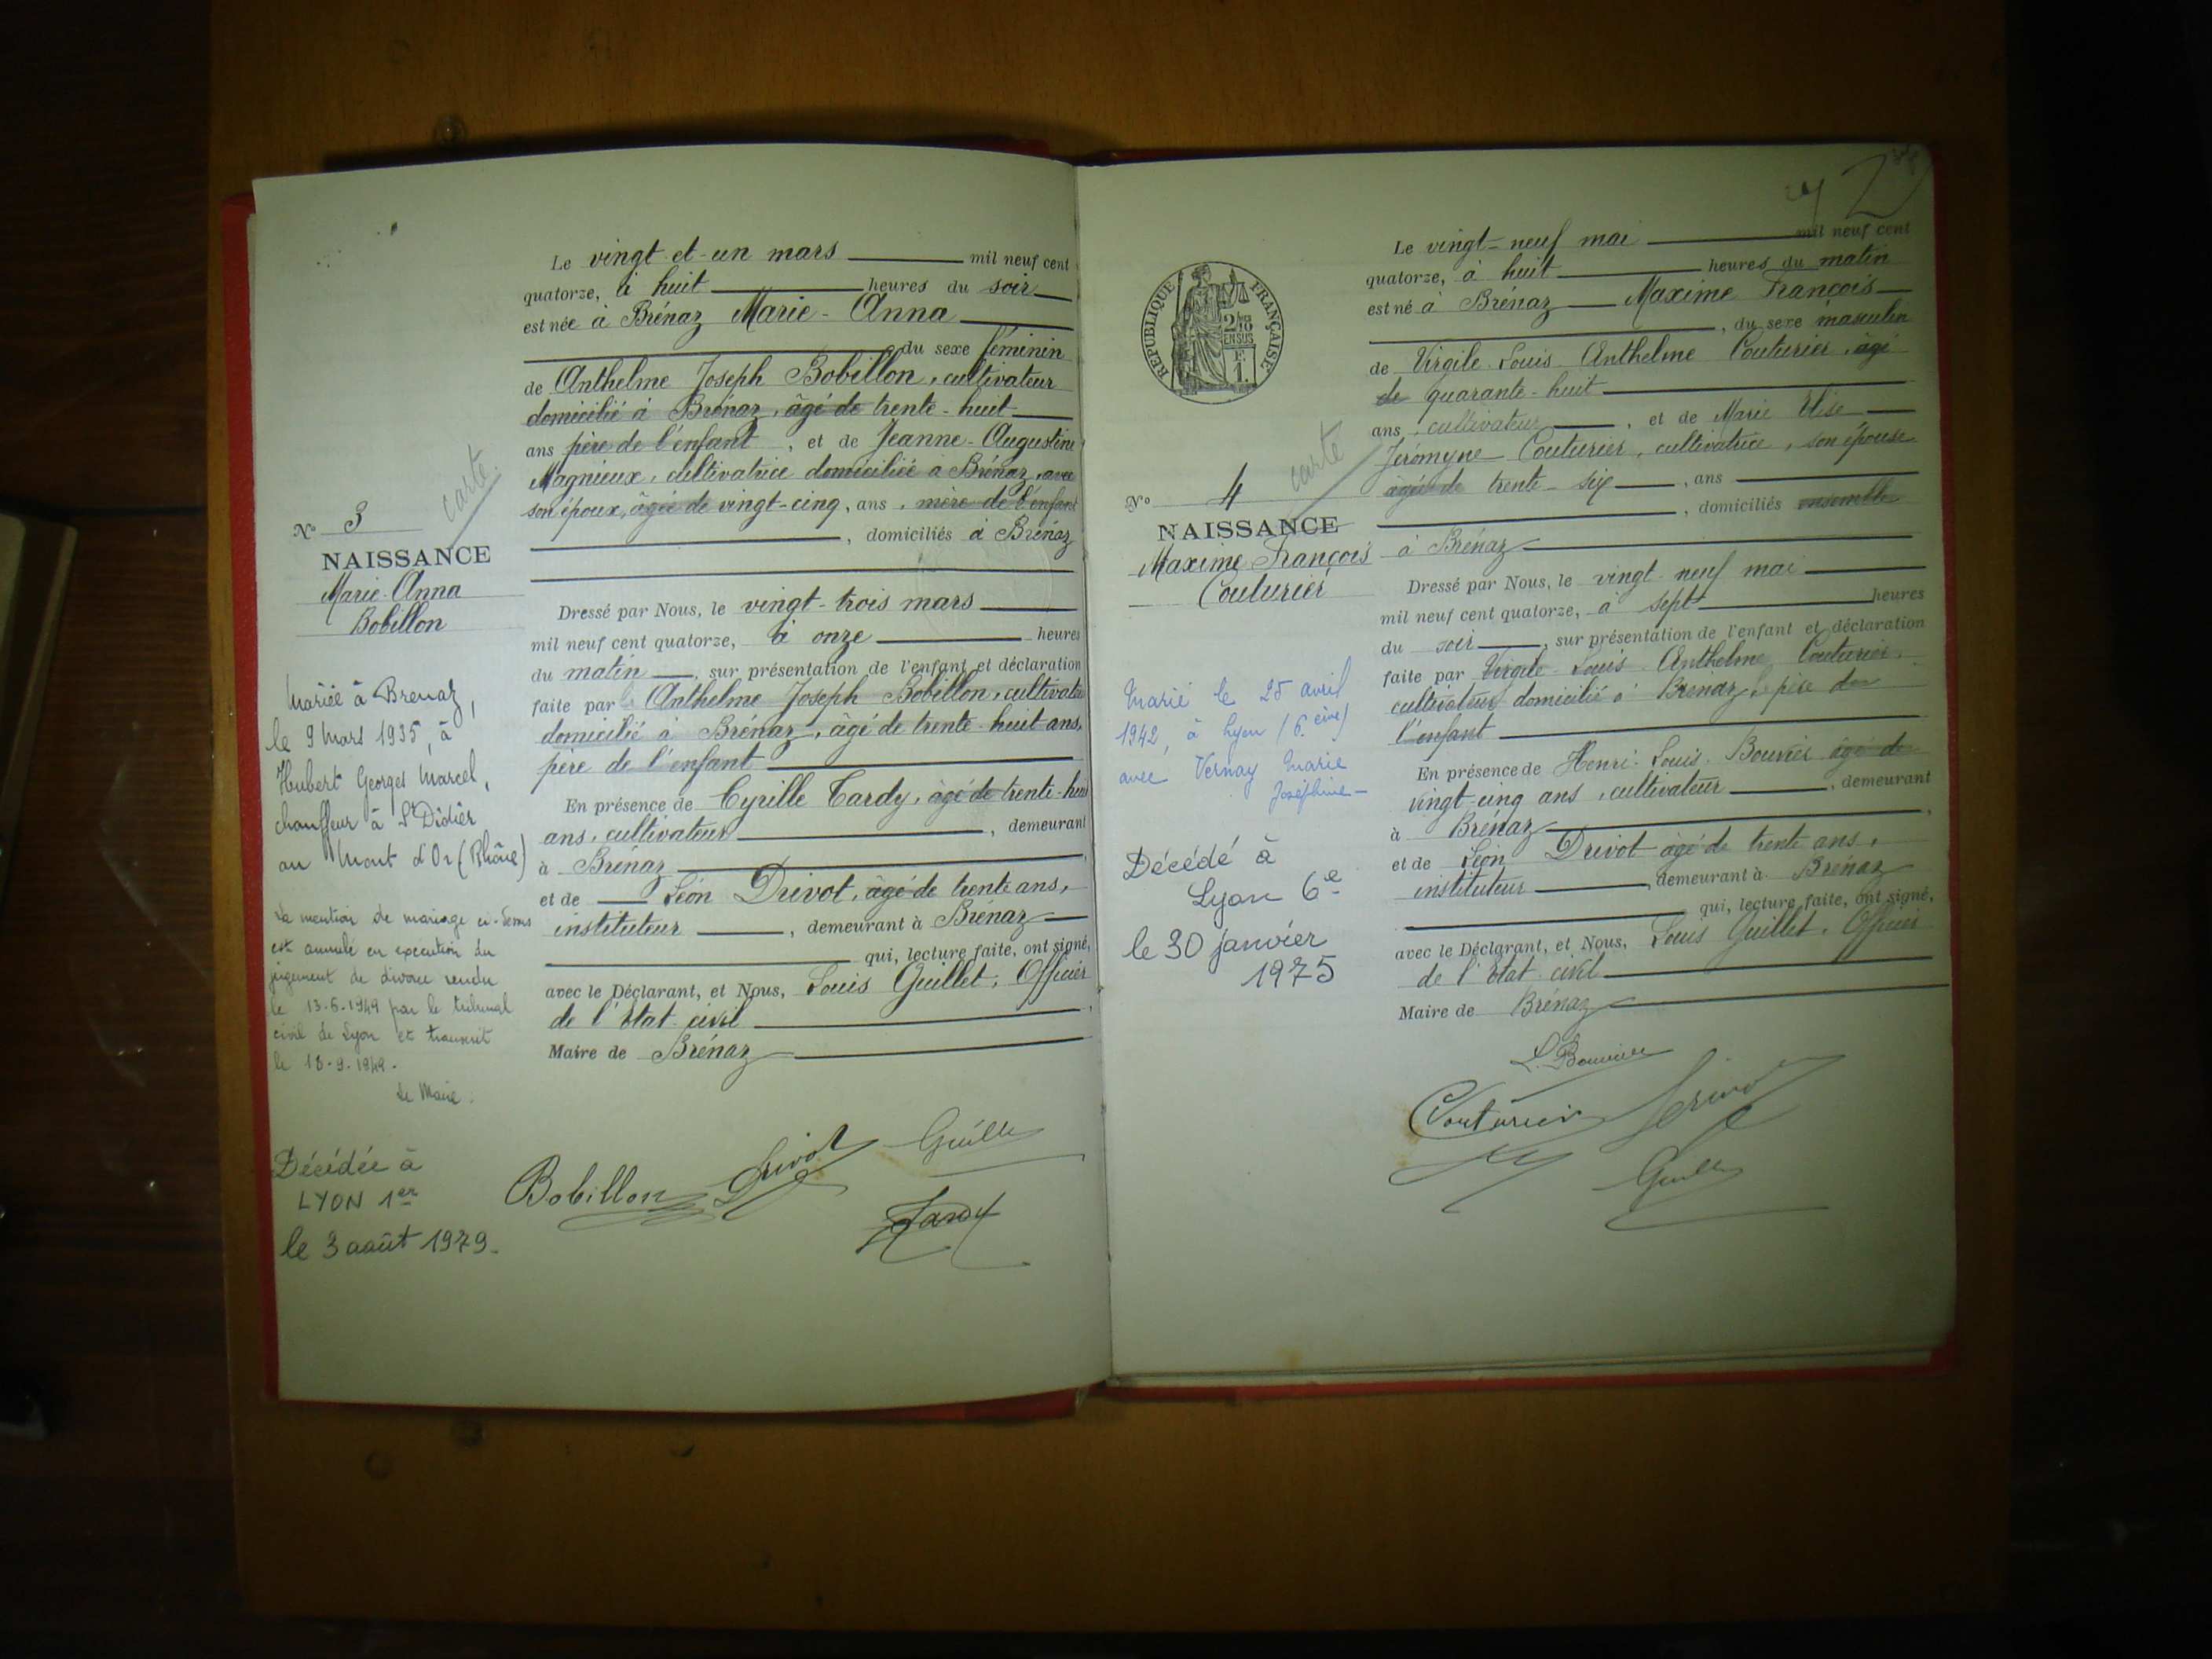 Le vingt-et-un mars mil neuf cent
quatorze, à huit heures du soir
est née à Brénaz Marie-Anna
, du sexe féminin
de Anthelme Joseph Bobillon, cultivateur
domicilié à Brénaz, âgé de trente-huit
ans père de l'enfant, et de Jeanne-Augustine
Magnieux, cultivatrice domiciliée à Brénaz, avec
son époux, âgée de vingt-cinq, ans, mère de l'enfant
, domiciliés à Brénaz
carte
N° 3
NAISSANCE
Marie-Anna
Bobillon
Dressé par Nous, le vingt-trois mars
mil neuf cent quatorze, à onze heures
du matin, sur présentation de l'enfant et déclaration
faite par Anthelme Joseph Bobillon, cultivateur
domicilié à Brénaz, âgé de trente-huit ans,
père de l'enfant
En présence de Cyrille Tardy, âgé de trente-huit
ans, cultivateur, demeurant
à Brénaz,
et de Léon Drivot, âgé de trente ans,
instituteur, demeurant à Brénaz
qui, lecture faite, ont signé,
avec le Déclarant, et Nous, Louis Guillet, Officier
de l'Etat-civil,
Maire de Brénaz
Mariée à Brenaz,
le 9 Mars 1935, à
Hubert Georges Marcel,
chauffeur à St Didier
au Mont d'Or (Rhône)
La mention de mariage ci-dessus
est annulé en execution du
jugement de divorce rendu
le 13-5-1949 par le tribunal
civil de Lyon et transcrit
le 18-9-1949.
Le Maire.
Décédée à
LYON 1er
le 3 août 1979.
Bobillon Drivot Guillet
Tardy
2
REPUBLIQUE FRANÇAISE
2/10
EN SUS
F.
1.
Le vingt-neuf mai mil neuf cent
quatorze, à huit heures du matin
est né à Brénaz Maxime François
, du sexe masculin
de Virgile Louis Anthelme Couturier, âgé
de quarante-huit
ans, cultivateur, et de Marie Elise
Jéromyne Couturier, cultivatrice, son épouse
âgée de trente-six, ans
, domiciliés ensemble
à Brénaz
carte
N° 4
NAISSANCE
Maxime François
Couturier
Dressé par Nous, le vingt-neuf mai
mil neuf cent quatorze, à sept heures
du soir, sur présentation de l'enfant et déclaration
faite par Virgile Louis Anthelme Couturier,
cultivateur domicilié à Brénaz, père de
l'enfant
En présence de Henri Louis Bouvier âgé de
vingt-cinq ans, cultivateur, demeurant
à Brénaz,
et de Léon Drivot âgé de trente ans,
instituteur, demeurant à Brénaz
qui, lecture faite, ont signé,
avec le Déclarant, et Nous, Louis Guillet, Officier
de l'Etat-civil
Maire de Brénaz
Marié le 25 avril
1942, à Lyon (6.ème)
avec Vernay Marie
Joséphine
Décédé à
Lyon 6e
le 30 janvier
1975
L. Bouvier
Couturier Drivot
Guillet